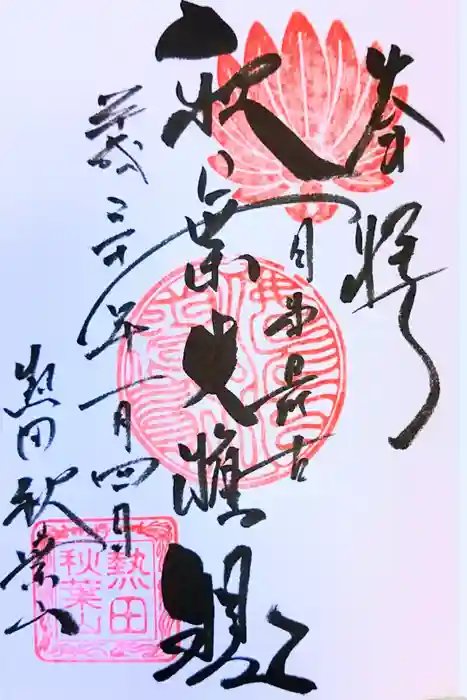 奉拝
日本最古
秋葉大權現
平成三十年一月四日
熱田秋葉山
熱田
秋葉山